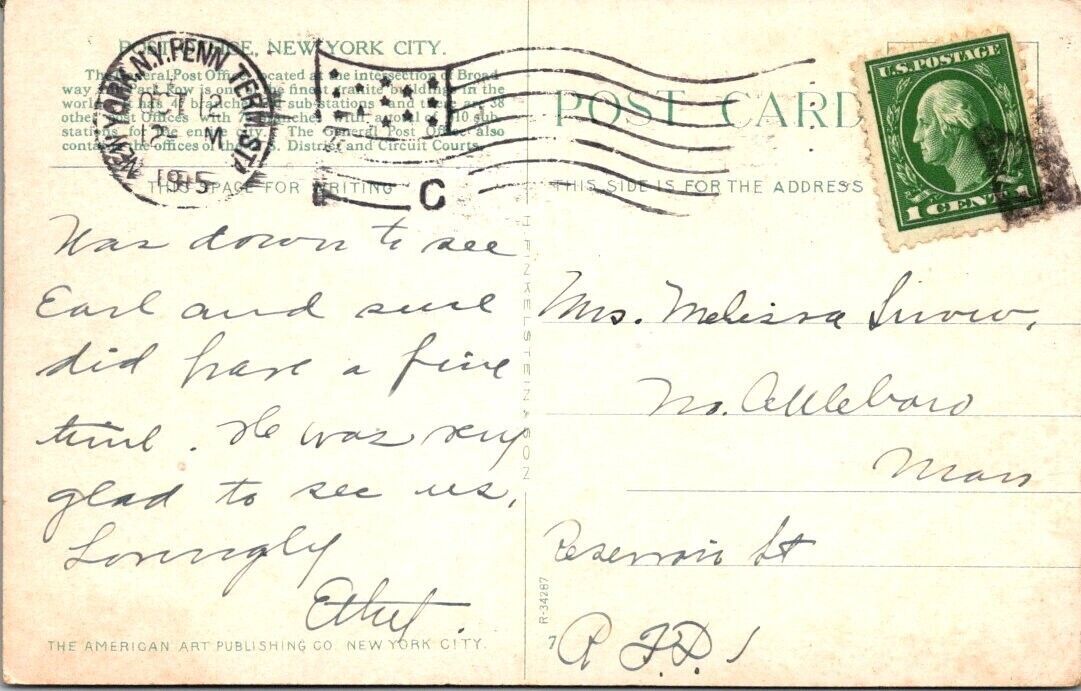 POST OFFICE, NEW YORK CITY.
The General Post Office located at the intersection of Broad
way and Park Row is one of the finest granite buildings in the
world. It has 47 branches and sub-stations and there are 38
other Post Offices with branches with a total of 310 sub
stations for the entire city. The General Post Office also
contains the offices of the U.S. District and Circuit Courts.
NEW YORK, N.Y. PENN. TERM. STA.
12 M
1915
C
THIS SPACE FOR WRITING
Was down to see
Earl and sure
did have a fine
time. He was very
glad to see us.
Lovingly
Ethel.
THE AMERICAN ART PUBLISHING CO. NEW YORK CITY.
H FINKELSTEIN & SON
R-34287
POST CARD
THIS SIDE IS FOR THE ADDRESS
U.S. POSTAGE
1 CENT 1
Mrs. Melissa Snow,
No. Attleboro
Mass
Reservoir St
7
R F.D. 1